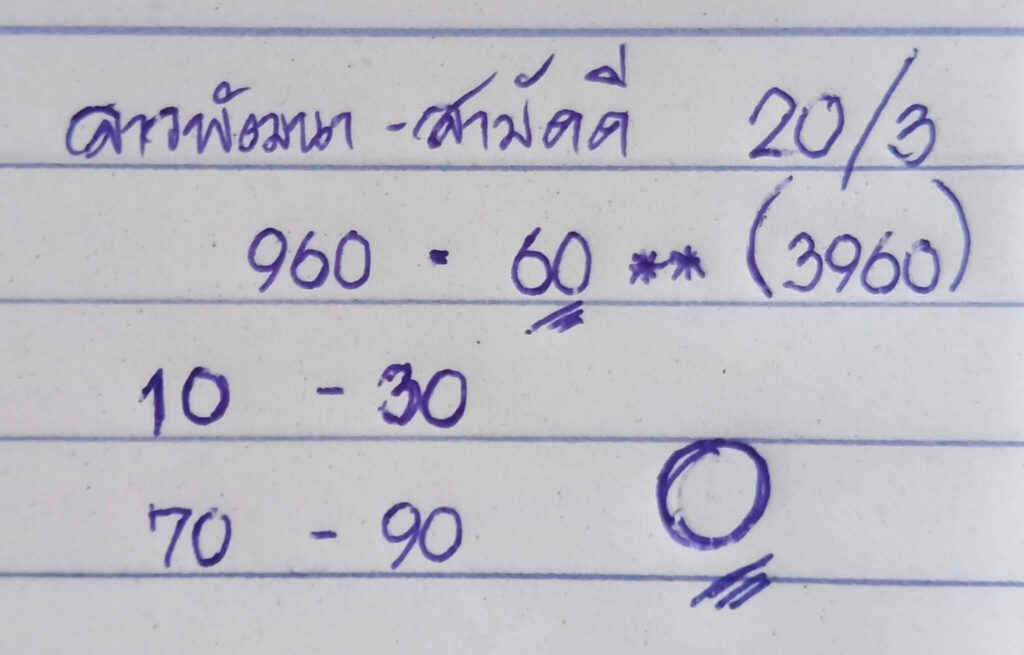 ลาวพัฒนา - สามัคคี 20/3
960 · 60 ** (3960)
10 - 30
70 - 90
0